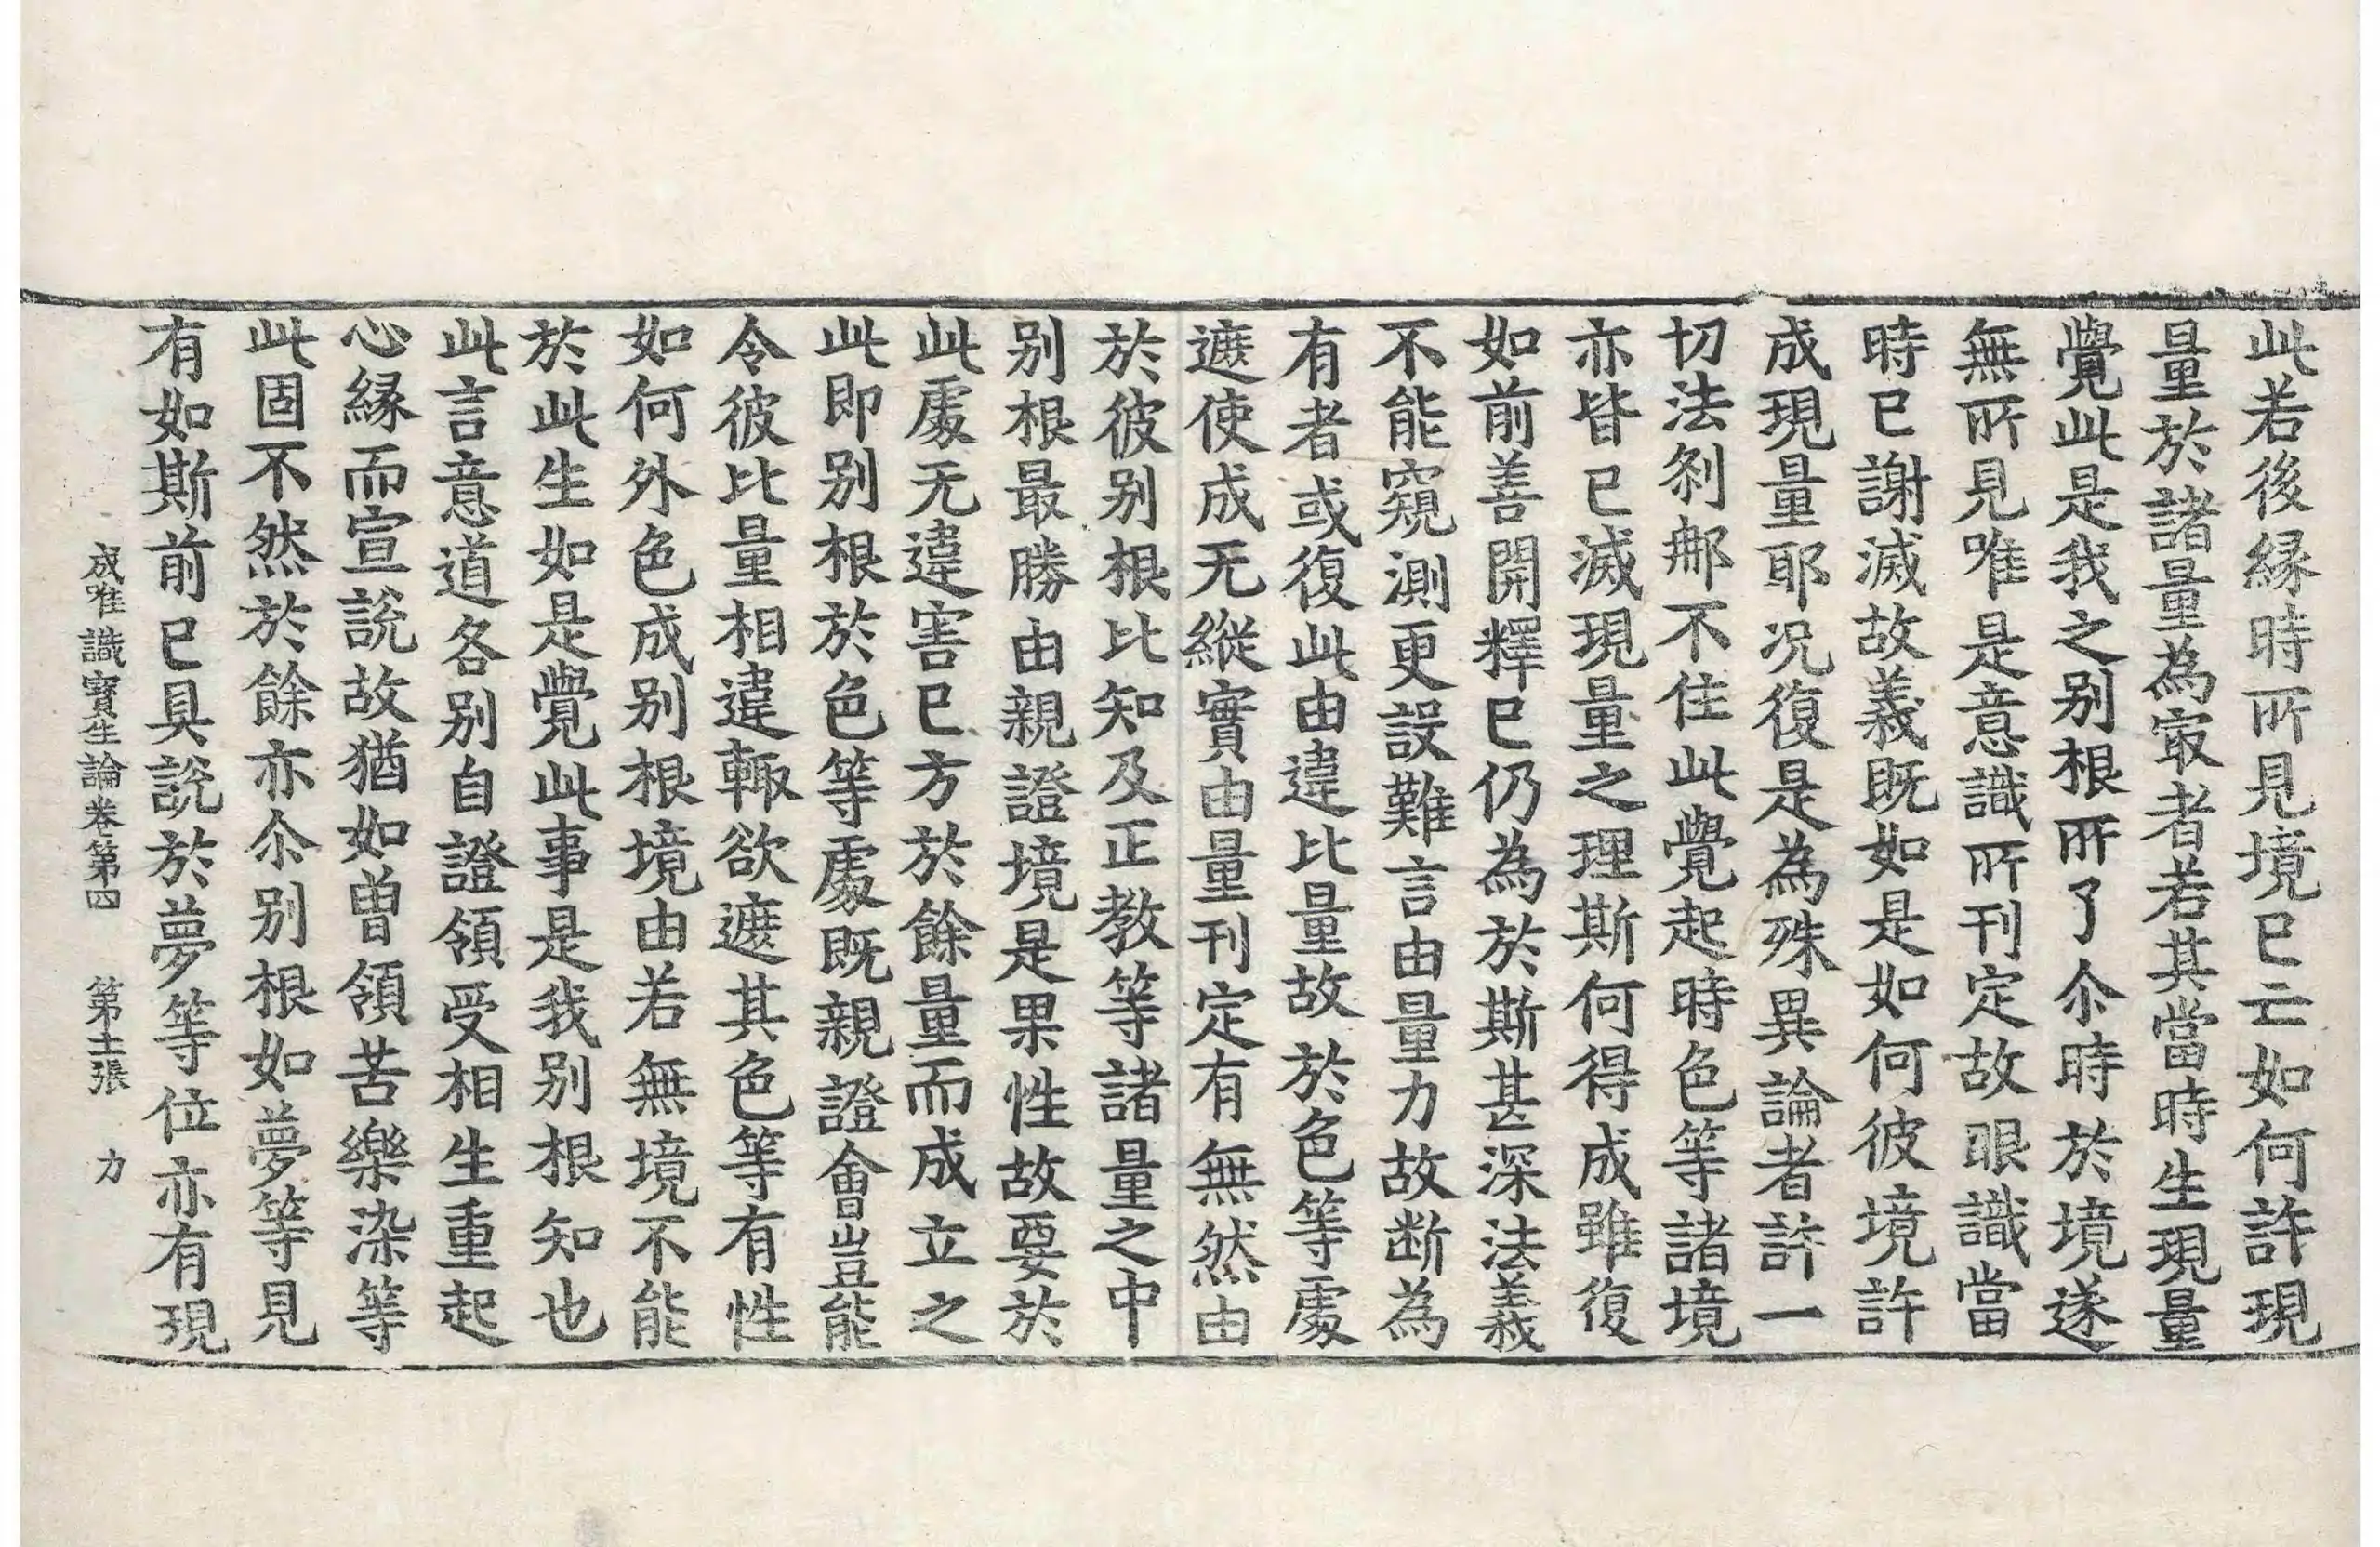 此若後緣時所見境已亡如何許現
量於諸量為㝡者若其當時生現量
覺此是我之别根所了尒時於境遂
無所見唯是意識所刊定故眼識當
時已謝滅故義既如是如何彼境許
成現量耶況復是為殊異論者許一
切法剎那不住此覺起時色等諸境
亦皆已滅現量之理斯何得成雖復
如前善開釋已仍為於斯甚深法義
不能窺測更設難言由量力故断為
有者或復此由違比量故於色等處
遮使成无縱實由量刊定有無然由
於彼别根比知及正教等諸量之中
别根最勝由親證境是果性故要於
此處无違害已方於餘量而成立之
此即别根於色等處既親證會豈能
令彼比量相違輙欲遮其色等有性
如何外色成别根境由若無境不能
於此生如是覺此事是我别根知也
此言意道各别自證領受相生重起
心縁而宣說故猶如曾領苦樂染等
此固不然於餘亦尒别根如夢等見
有如斯前已具說於夢等位亦有現
成唯識寶生論卷第四　第十一張　力